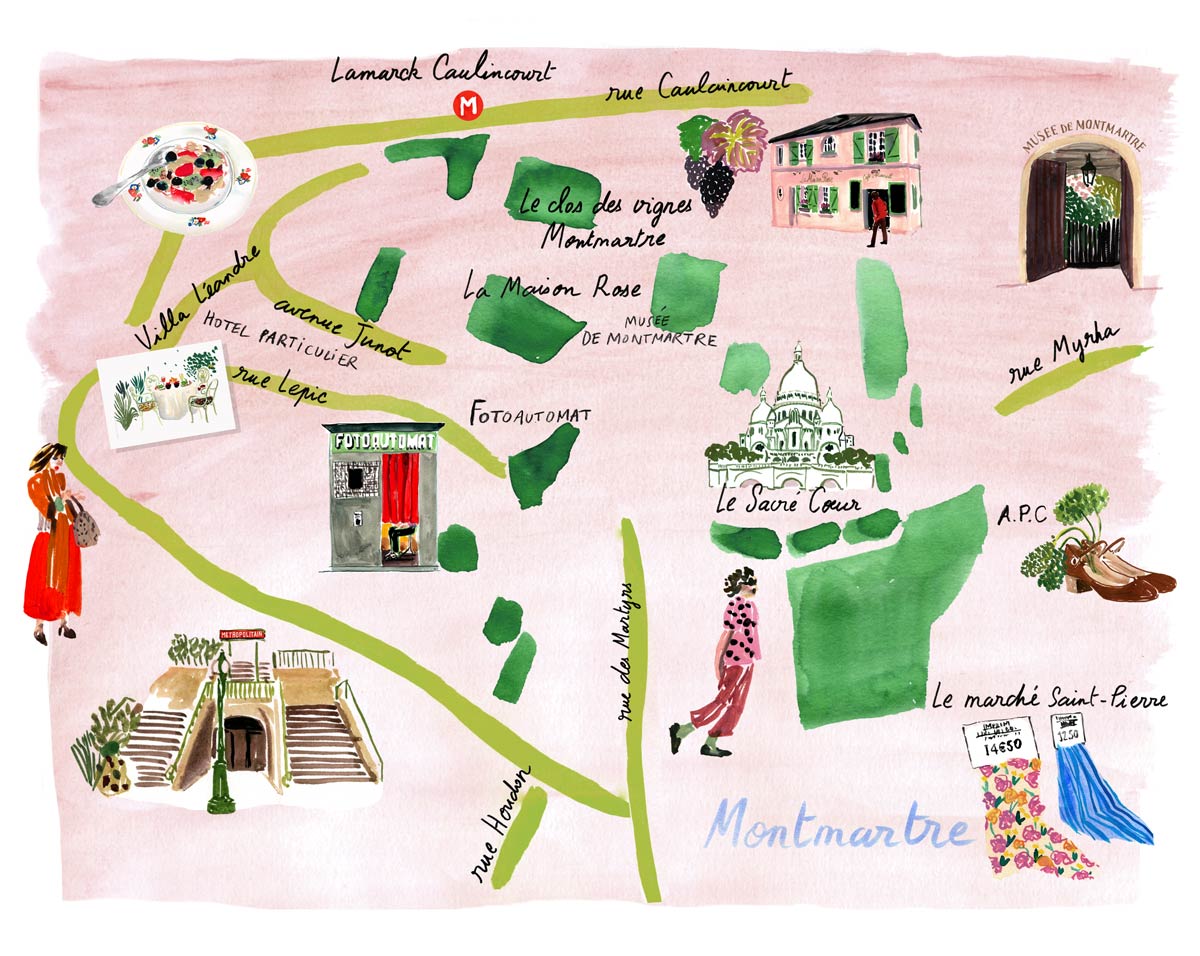 Lamarck Caulincourt
M
rue Caulaincourt
MUSEE DE MONTMARTRE
Le clos des vignes
Montmartre
Villa Léandre
HOTEL PARTICULIER
avenue Junot
La Maison Rose
MUSÉE
DE MONTMARTRE
rue Myrha
rue Lepic
FOTOAUTOMAT
FOTOAUTOMAT
Le Sacré Cœur
A.P.C
METROPOLITAIN
rue des Martyrs
Le marché Saint-Pierre
14€50
12.50
rue Houdon
Montmartre